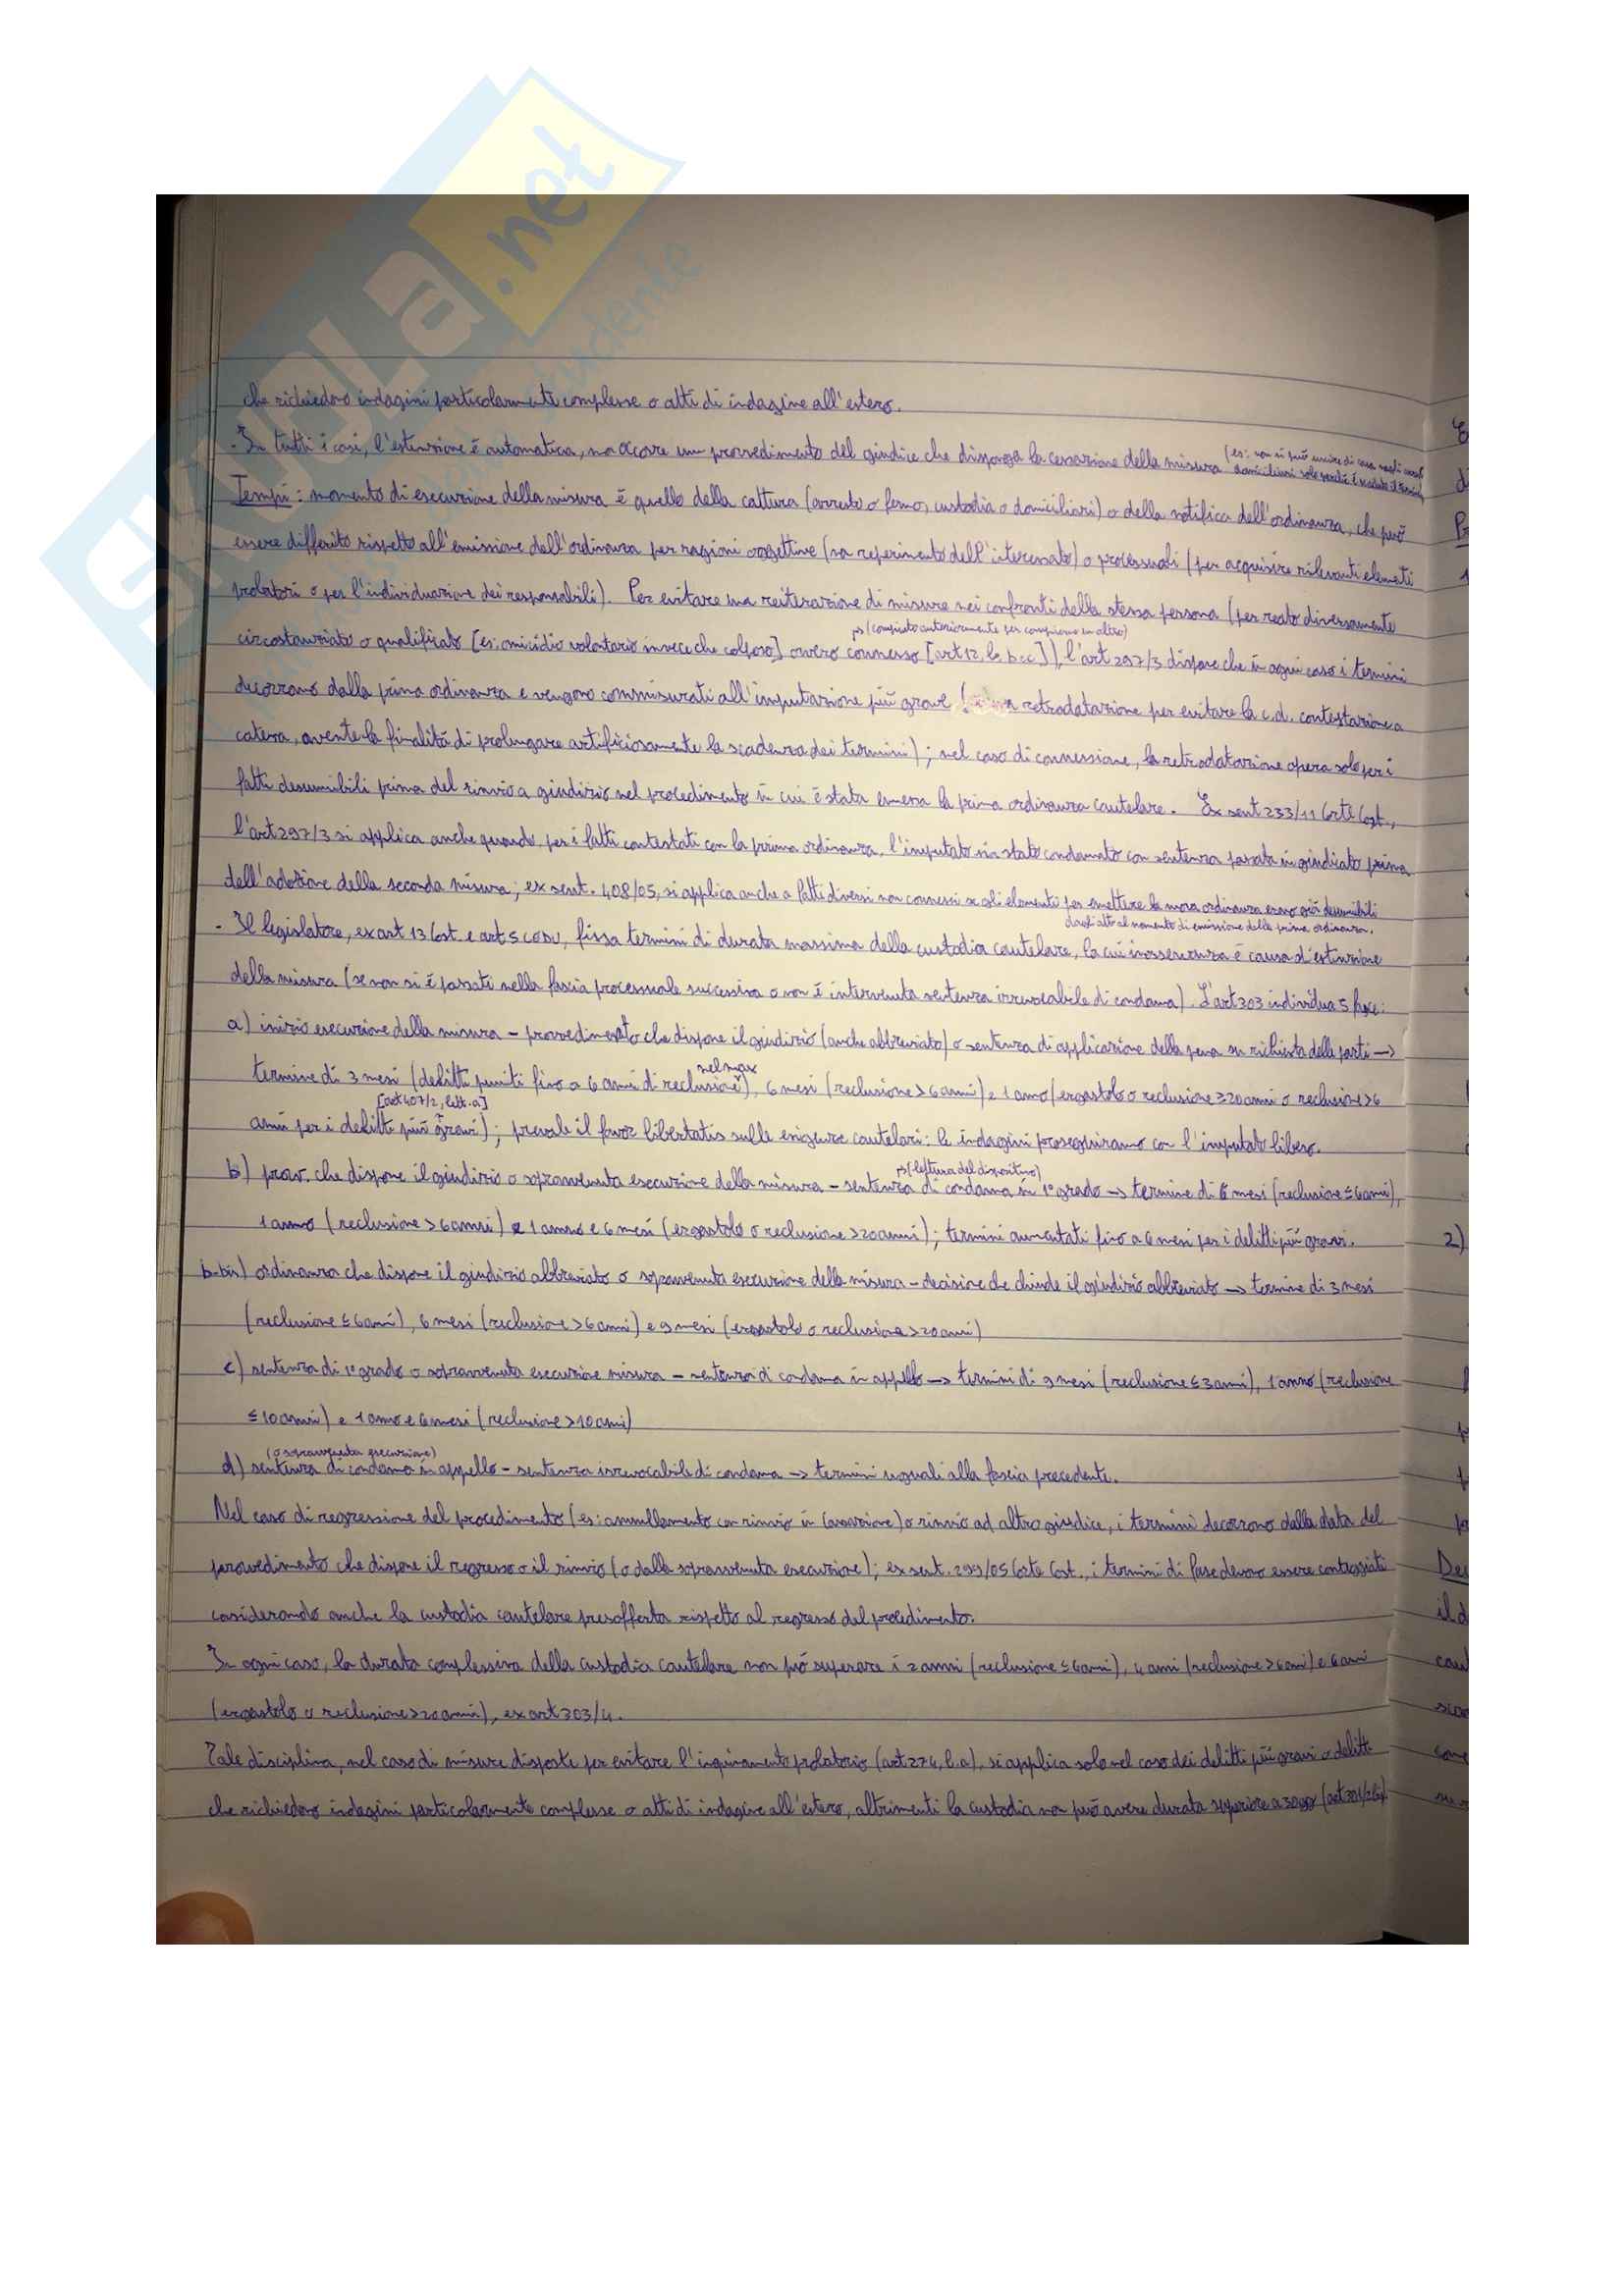 che richiedono indagini particolarmente complesse o atti di indagine all'estero.
- In tutti i casi, l'estinzione è automatica, ma occorre un provvedimento del giudice che disponga la cessazione della misura (es: non si può uscire di casa negli arresti domiciliari solo perché è scaduto il termine)
Tempi: momento di esecuzione della misura è quello della cattura (arresto o fermo, custodia o domiciliari) o della notifica dell'ordinanza, che può
essere differito rispetto all'emissione dell'ordinanza per ragioni oggettive (no reperimento dell'interessato) o processuali (per acquisire rilevanti elementi
probatori o per l'individuazione dei responsabili). Per evitare una reiterazione di misure nei confronti della stessa persona (per reato diversamente
circostanziato o qualificato [es: omicidio volontario invece che colposo] ovvero connesso [art 12, b, b e c]), l'art 297/3 dispone che in ogni caso i termini
ps (compiuto anteriormente per compierne un altro)
decorrono dalla prima ordinanza e vengono commisurati all'imputazione più grave retrodatazione per evitare la c.d. contestazione a
catena, avente la finalità di prolungare artificiosamente la scadenza dei termini); nel caso di connessione, la retrodatazione opera solo per i
fatti desumibili prima del rinvio a giudizio nel procedimento in cui è stata emessa la prima ordinanza cautelare. Ex sent 233/11 Corte Cost.,
l'art 297/3 si applica anche quando, per i fatti contestati con la prima ordinanza, l'imputato sia stato condannato con sentenza passata in giudicato prima
dell'adozione della seconda misura; ex sent. 408/05, si applica anche a fatti diversi non connessi se gli elementi per emettere la nuova ordinanza erano già desumibili
dagli atti al momento di emissione della prima ordinanza.
- Il legislatore, ex art 13 Cost. e art 5 CEDU, fissa termini di durata massima della custodia cautelare, la cui inosservanza è causa d'estinzione
della misura (se non si è passati nella fascia processuale successiva o non è intervenuta sentenza irrevocabile di condanna). L'art 303 individua 5 fasce:
a) inizio esecuzione della misura - provvedimento che dispone il giudizio (anche abbreviato) o sentenza di applicazione della pena su richiesta delle parti →
termine di 3 mesi (delitti puniti fino a 6 anni di reclusione), 6 mesi (reclusione > 6 anni) e 1 anno (ergastolo o reclusione ≥ 20 anni o reclusione > 6
nel max
[art 407/2, lett. a]
anni per i delitti più gravi); prevale il favor libertatis sulle esigenze cautelari: le indagini proseguiranno con l'imputato libero.
b) prov. che dispone il giudizio o sopravvenuta esecuzione della misura - sentenza di condanna in 1° grado → termine di 6 mesi (reclusione ≤ 6 anni),
ps (lettura del dispositivo)
1 anno (reclusione > 6 anni) e 1 anno e 6 mesi (ergastolo o reclusione > 20 anni); termini aumentati fino a 6 mesi per i delitti più gravi.
b-bis) ordinanza che dispone il giudizio abbreviato o sopravvenuta esecuzione della misura - decisione che chiude il giudizio abbreviato → termine di 3 mesi
(reclusione ≤ 6 anni), 6 mesi (reclusione > 6 anni) e 9 mesi (ergastolo o reclusione > 20 anni)
c) sentenza di 1° grado o sopravvenuta esecuzione misura - sentenza di condanna in appello → termini di 9 mesi (reclusione ≤ 3 anni), 1 anno (reclusione
≤ 10 anni) e 1 anno e 6 mesi (reclusione > 10 anni)
(o sopravvenuta esecuzione)
d) sentenza di condanna in appello - sentenza irrevocabile di condanna → termini uguali alla fascia precedente.
Nel caso di regressione del procedimento (es: annullamento con rinvio in Cassazione) o rinvio ad altro giudice, i termini decorrono dalla data del
provvedimento che dispone il regresso o il rinvio (o dalla sopravvenuta esecuzione); ex sent. 299/05 Corte Cost., i termini di fase devono essere conteggiati
considerando anche la custodia cautelare presofferta rispetto al regresso del procedimento.
In ogni caso, la durata complessiva della custodia cautelare non può superare i 2 anni (reclusione ≤ 6 anni), 4 anni (reclusione > 6 anni) e 6 anni
(ergastolo o reclusione > 20 anni), ex art 303/4.
Tale disciplina, nel caso di misure disposte per evitare l'inquinamento probatorio (art 274, l. a), si applica solo nel caso dei delitti più gravi o delitti
che richiedono indagini particolarmente complesse o atti di indagine all'estero, altrimenti la custodia non può avere durata superiore a 30 gg
2)
.net